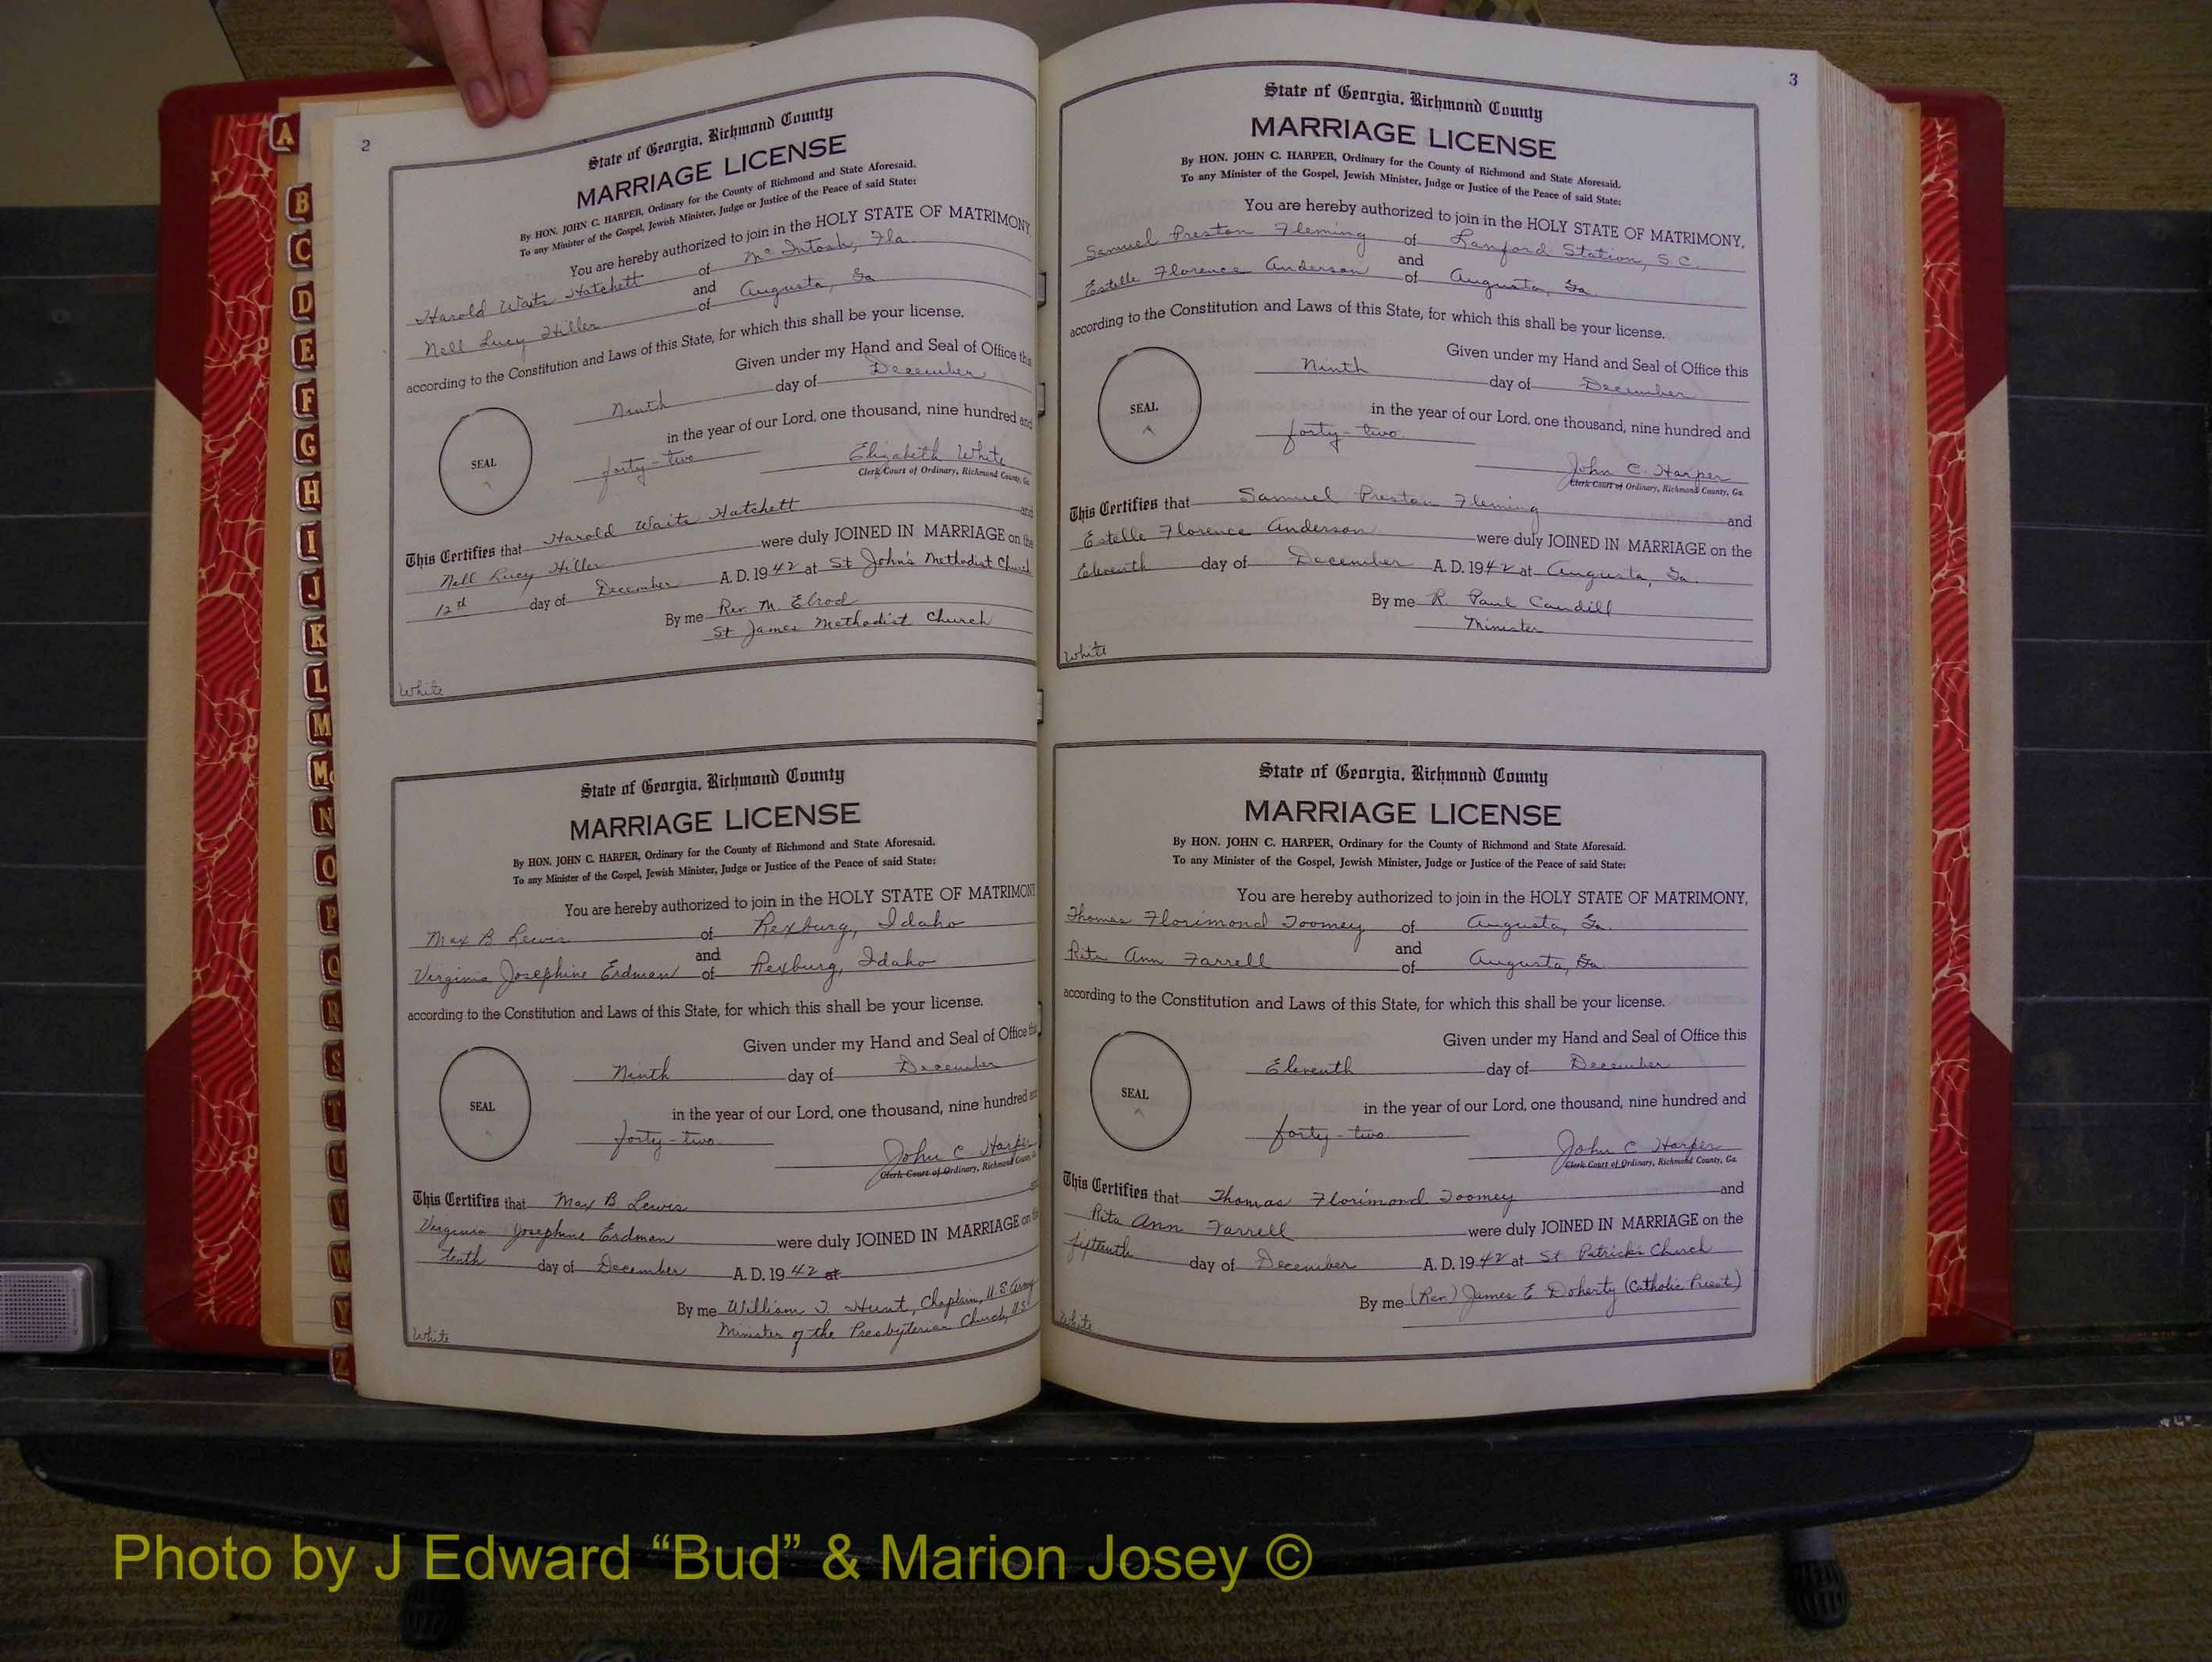 2
State of Georgia, Richmond County
MARRIAGE LICENSE
By HON. JOHN C. HARPER, Ordinary for the County of Richmond and State Aforesaid.
To any Minister of the Gospel, Jewish Minister, Judge or Justice of the Peace of said State:
You are hereby authorized to join in the HOLY STATE OF MATRIMONY,
Harold Waits Hatchett of McIntosh, Fla.
and
Nell Lucy Hiller of Augusta, Ga
according to the Constitution and Laws of this State, for which this shall be your license.
Given under my Hand and Seal of Office this
Ninth day of December
in the year of our Lord, one thousand, nine hundred and
SEAL
forty-two Elizabeth White
Clerk Court of Ordinary, Richmond County, Ga
This Certifies that Harold Waits Hatchett and
Nell Lucy Hiller were duly JOINED IN MARRIAGE on the
12th day of December A. D. 1942 at St John's Methodist Church
By me Rev M. Elrod
St James Methodist Church
White
State of Georgia, Richmond County
MARRIAGE LICENSE
By HON. JOHN C. HARPER, Ordinary for the County of Richmond and State Aforesaid.
To any Minister of the Gospel, Jewish Minister, Judge or Justice of the Peace of said State:
You are hereby authorized to join in the HOLY STATE OF MATRIMON
Max B Lewis of Rexburg, Idaho
and
Virginia Josephine Erdman of Rexburg, Idaho
according to the Constitution and Laws of this State, for which this shall be your license.
Given under my Hand and Seal of Office this
Ninth day of December
in the year of our Lord, one thousand, nine hundred and
SEAL
forty-two John C Harper
Clerk Court of Ordinary, Richmond County
This Certifies that Max B Lewis and
Virginia Josephine Erdman were duly JOINED IN MARRIAGE on th
tenth day of December A. D. 1942 at
By me William J. Hunt, Chaplain, U.S Army
Minister of the Presbyterian Church, US
White
3
State of Georgia, Richmond County
MARRIAGE LICENSE
By HON. JOHN C. HARPER, Ordinary for the County of Richmond and State Aforesaid.
To any Minister of the Gospel, Jewish Minister, Judge or Justice of the Peace of said State:
You are hereby authorized to join in the HOLY STATE OF MATRIMONY,
Samuel Preston Fleming of Lanford Station, S.C.
and
Estelle Florence Anderson of Augusta, Ga.
according to the Constitution and Laws of this State, for which this shall be your license.
Given under my Hand and Seal of Office this
Ninth day of December
in the year of our Lord, one thousand, nine hundred and
SEAL
forty-two John C. Harper
Clerk Court of Ordinary, Richmond County, Ga
This Certifies that Samuel Preston Fleming and
Estelle Florence Anderson were duly JOINED IN MARRIAGE on the
Eleventh day of December A. D. 1942 at Augusta, Ga.
By me R. Paul Caudill
Minister
White
State of Georgia, Richmond County
MARRIAGE LICENSE
By HON. JOHN C. HARPER, Ordinary for the County of Richmond and State Aforesaid.
To any Minister of the Gospel, Jewish Minister, Judge or Justice of the Peace of said State:
You are hereby authorized to join in the HOLY STATE OF MATRIMONY,
Thomas Florimond Toomey of Augusta, Ga.
and
Rita Ann Farrell of Augusta, Ga.
according to the Constitution and Laws of this State, for which this shall be your license.
Given under my Hand and Seal of Office this
Eleventh day of December
in the year of our Lord, one thousand, nine hundred and
SEAL
forty-two John C Harper
Clerk Court of Ordinary, Richmond County, Ga
This Certifies that Thomas Florimond Toomey and
Rita Ann Farrell were duly JOINED IN MARRIAGE on the
fifteenth day of December A. D. 1942 at St Patrick's Church
By me (Rev) James E Doherty (Catholic Priest)
White
A
B
C
D
E
F
G
H
I
J
K
L
M
Mc
N
O
P
Q
R
S
T
U
V
W
Y
Z
Photo by J Edward “Bud” & Marion Josey ©